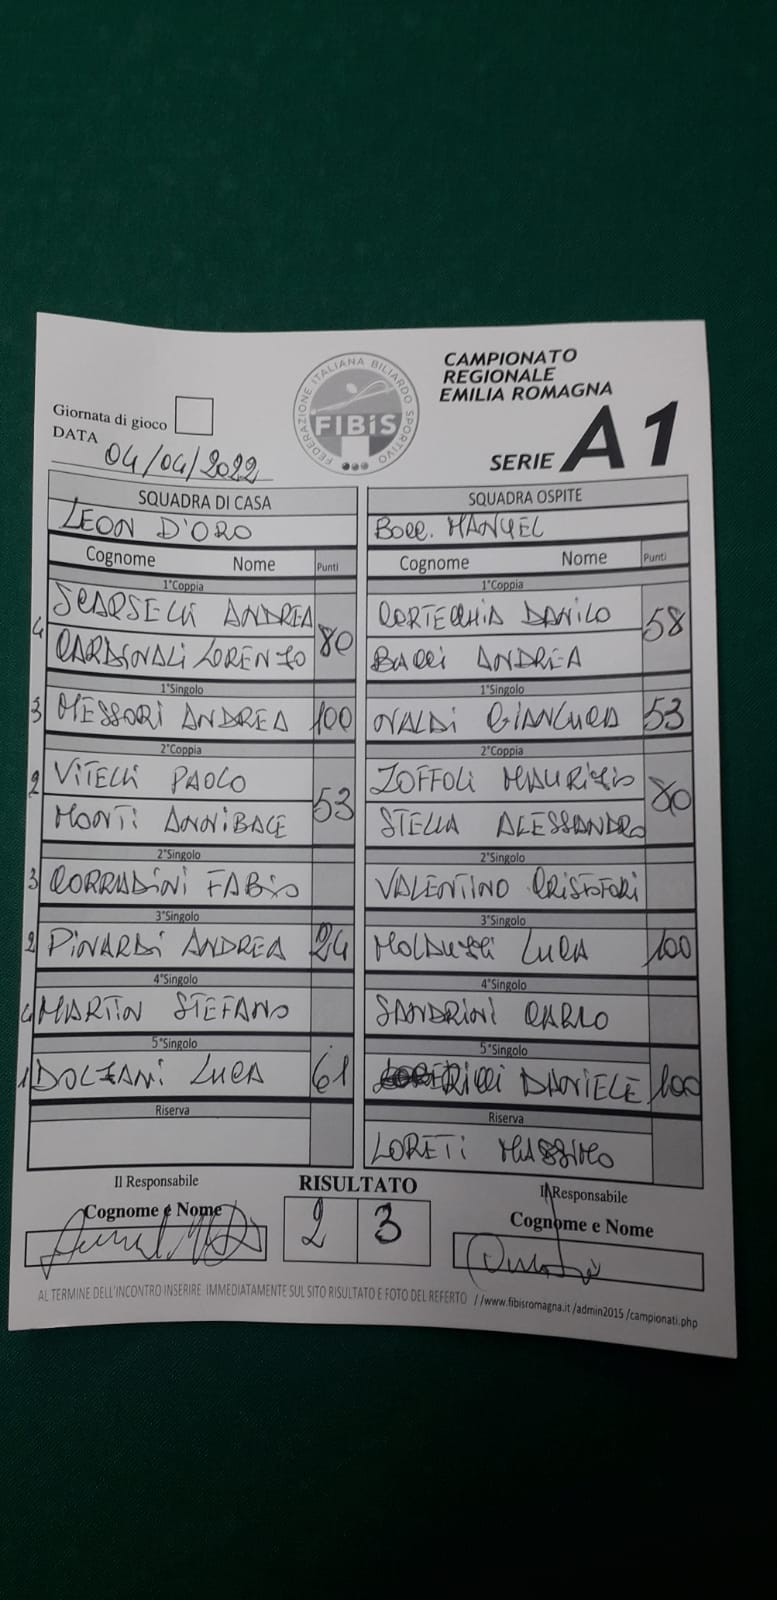 CAMPIONATO
REGIONALE
EMILIA ROMAGNA
SERIE A1
FEDERAZIONE ITALIANA BILIARDO SPORTIVO
FIBiS
Giornata di gioco
DATA 04/04/2022
SQUADRA DI CASA SQUADRA OSPITE
LEON D'ORO BOCC. MANUEL
Cognome Nome Punti Cognome Nome Punti
1°Coppia 1°Coppia
4 SCARSELLI ANDREA 80 CORTECCHIA DANILO 58
CARDINALI LORENZO BACCI ANDREA
1°Singolo 1°Singolo
3 MESSORI ANDREA 100 OVALDI GIANLUCA 53
2°Coppia 2°Coppia
2 VITELLI PAOLO 53 ZOFFOLI MAURIZIO 80
MONTI ANNIBALE STELLA ALESSANDRO
2°Singolo 2°Singolo
3 CORRADINI FABIO VALENTINO CRISTOFORI
3°Singolo 3°Singolo
2 PINARDI ANDREA 24 LUCA 100
4°Singolo 4°Singolo
4 MARTIN STEFANO SANDRINI CARLO
5°Singolo 5°Singolo
1 DOLZANI LUCA 61 RICCI DANIELE 100
Riserva Riserva
LORETI MASSIMO
Il Responsabile RISULTATO Il Responsabile
Cognome e Nome 2 3 Cognome e Nome
AL TERMINE DELL'INCONTRO INSERIRE IMMEDIATAMENTE SUL SITO RISULTATO E FOTO DEL REFERTO //www.fibisromagna.it/admin2015/campionati.php